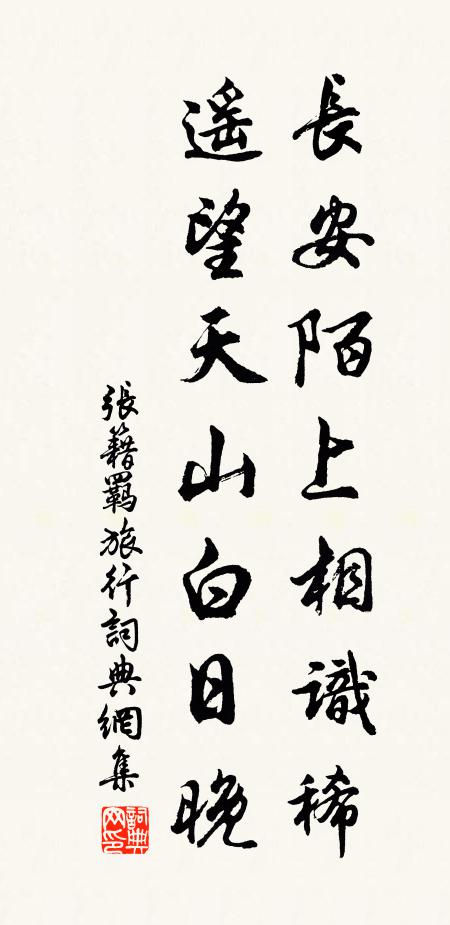 長安陌上相識稀
遙望天山白日晚
張籍羈旅行詞典網集
詞典網印